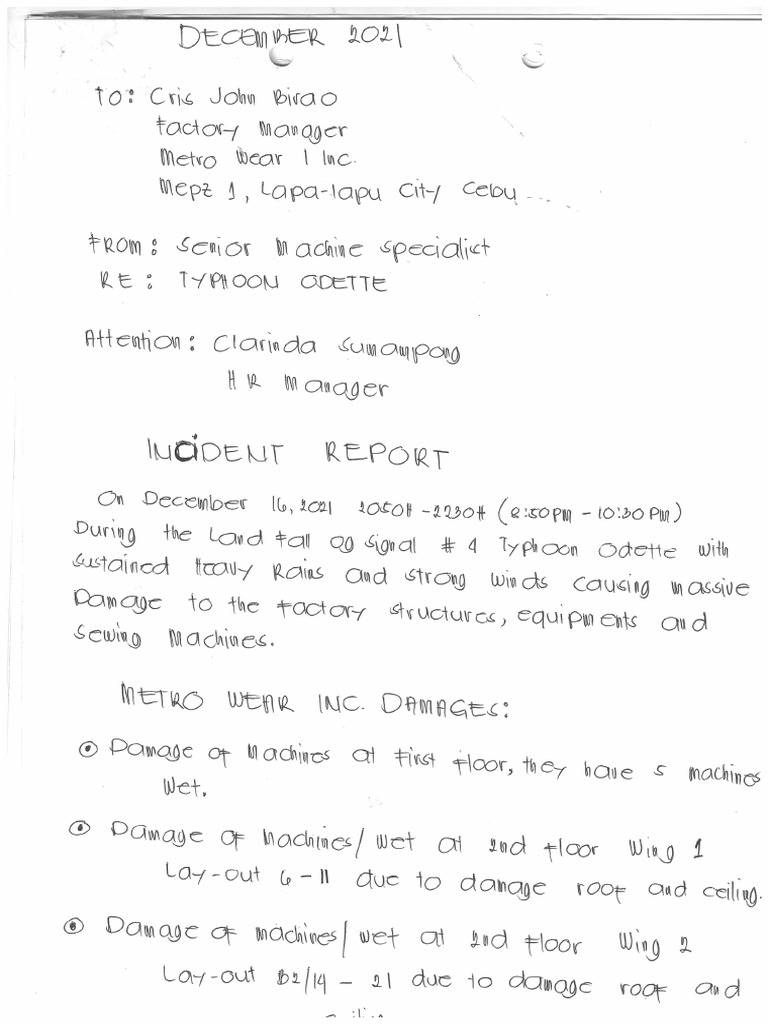 DECEMBER 2021
TO: Cris John Birao
Factory Manager
Metro Wear 1 Inc.
Mepz 1, Lapa-lapu City Cebu...
FROM: Senior Machine Specialist
RE: TYPHOON ODETTE
Attention: Clarinda Sumampong
HR Manager
INCIDENT REPORT
On December 16, 2021 2050H - 2230H (8:50PM - 10:30PM)
During the Land Fall og signal # 4 Typhoon Odette with
sustained Heavy Rains and strong winds causing massive
Damage to the Factory structures, equipments and
Sewing Machines.
METRO WEAR INC. DAMAGES:
Damage of Machines at First Floor, they have 5 machines
Wet.
Damage of Machines/wet at 2nd Floor Wing 1
Lay-out 6 - 11 due to damage roof and ceiling.
Damage of machines/wet at 2nd Floor Wing 2
Lay-out B2/14 - 21 due to damage roof and